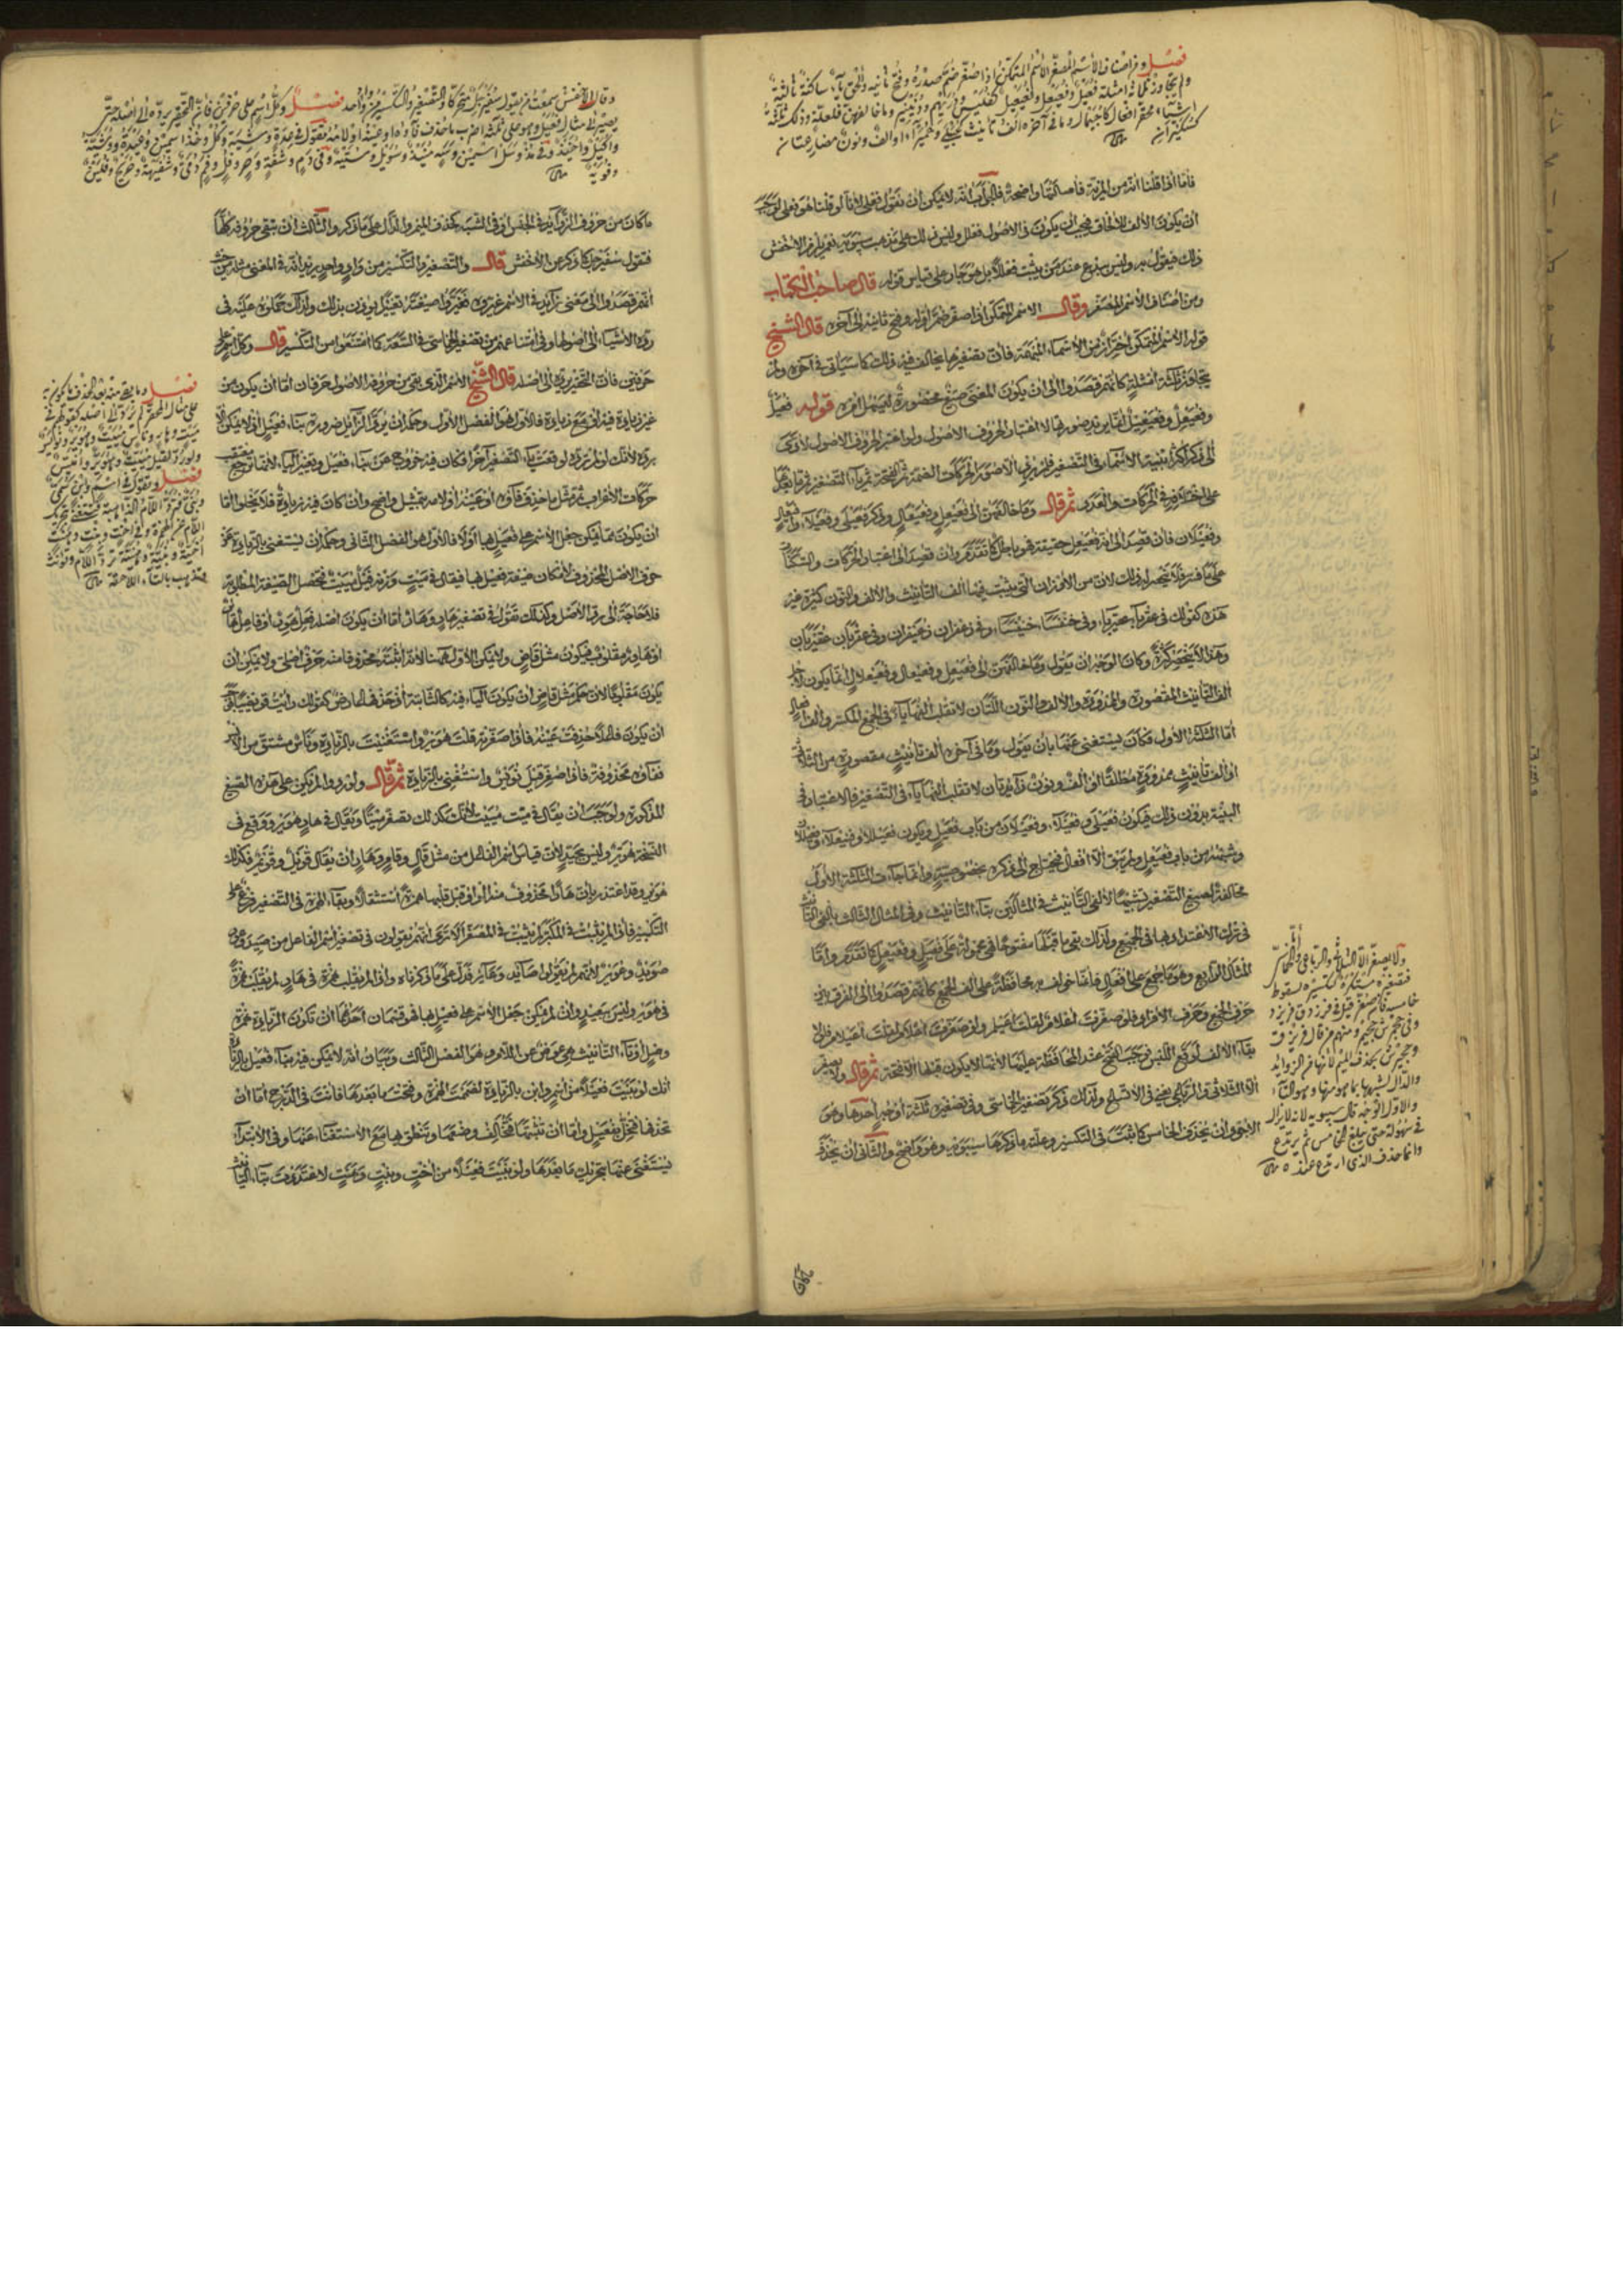 فصل ومن أصناف الاسم المصغر الاسم المتمكن إذا صغر ضم صدره وفتح ثانيه وألحق ياء ساكنة ثالثة
ولم يتجاوز ثلاثة أمثلة فعيل وفعيعل وفعيعيل كفليس ودريهم ودنينير وما خالفهن فلعلة وذلك ثلاثة
أشياء محقر أفعال كأجيمال وما في آخره ألف تأنيث كحبيلى وحميراء أو ألف ونون مضارعتان
كسكيران
فأما إذا قلنا أنه من المزية فأمسالتها واضحة لا يمكن أن نقول فعلى لأنا لو قلنا هو فعلى لوجب
أن يكون الألف للإلحاق فيجب أن يكون في الأصول فعلل وليس ذلك على مذهب سيبويه نعم يلزم الأخفش
ذلك فيقول به وليس ببدع عند من يثبت فعللا بل هو جار على قياس قوله قال صاحب الكتاب
ومن أصناف الاسم المصغر وقال الاسم المتمكن إذا صغر ضم أوله وفتح ثانيه إلى آخره قال الشيخ
قوله الاسم المتمكن احتراز من الأسماء المبهمة فإن تصغيرها مخالف فيه ذلك كما سيأتي في آخره ولم
يجاوز ثلاثة أمثلة كأنهم قصدوا إلى أن يكون المعنى صيغ محصورة ليسهل أمره قوله فعيل
وفعيعل وفعيعيل إنما يريد صورها لا اعتبار الحروف الأصول ولو اعتبر الحروف الأصول لأدى
إلى ذكر أكثر أبنية الأسماء في التصغير فلم يرد إلا صور الحركات الضمة ثم الفتحة ثم ياء التصغير ثم ما بعدها
على اختلافه في الحركات والعدد ثم قال وما خالفهن إلى فعيعل وفعيعال وذكر فعيلى وفعيلاء وأفيعال
وفعيلان فإن قصد إلى أنه فعيعل حقيقة فهو باطل كما تقدم وإن قصد إلى اعتبار الحركات والسكنات
على ما فسر فلا ينحصر له ذلك لأن من الأوزان التي ثبتت فيها ألف التأنيث والألف والنون كثيرة غير
هذه كقولك في عقرباء عقيرباء وفي خنفساء خنيفساء وفي زعفران زعيفران وفي عقربان عقيربان
وهذا لا ينحصر كثرة وكان الوجه أن يقول وما خالفهن إلى فعيعل وفعيعال وفعيعلال إنما يكون لأجل
ألف التأنيث المقصورة والممدودة والألف والنون اللتان لا تقلب ألفهما ياء في الجمع المكسر وألف أفعال
أما الثلاثة الأول فكان يستغني عنها بأن يقول وما في آخره ألف تأنيث مقصورة من الثلاثة
أو ألف تأنيث ممدودة مطلقا أو ألف ونون زائدتان لا تقلب ألفهما ياء في التصغير فالاعتبار في
البنية بدون ذلك فيكون فعيلى وفعيلاء وفعيلان من باب فعيل ويكون فعيللاء
وشبهه من باب فعيعل ولم يبق إلا أفعال فيحتاج إلى ذكره بخصوصيته وإنما جاءت الثلاثة الأول
مخالفة لصيغ التصغير تشبيها لألفي التأنيث في المثالين بتاء التأنيث وفي المثال الثالث بألفي التأنيث
في ترك الاعتداد بها في الجميع ولذلك بقي ما قبلها مفتوحا فهي محمولة على فعيل وفعيعل كما تقدم وأما
المثال الرابع وهو ما جمع على أفعال فإنما خولف به محافظة على ألف الجمع كأنهم قصدوا إلى الفرق بين
حرف الجمع وحرف الإفراد فلو صغرت أعلام لقلت أعيلام ولو صغرت إعلاما لقلت أعيليم فلولا
بقاء الألف لوقع اللبس فوجب الفتح عند المحافظة عليها لأنها لا يكون قبلها إلا فتحة ثم قال ولا يصغر
إلا الثلاثي والرباعي يعني في الأفصح ولذلك ذكر تصغير الخماسي وفي تصغيره ثلاثة أوجه أحدها وهو
الأجود أن تحذف الخامس كما ثبت في التكسير وعلته ما ذكرها سيبويه وهو واضح والثاني أن يحذف
ولا يصغر إلا الثلاثي والرباعي وأما الخماسي
فتصغيره مستكره كتكسيره لسقوط
خامسه فإن صغر قيل في فرزدق فريزد
وفي جحمرش جحيمر ومنهم من قال فريزق
وجحيرش بحذف الميم لأنها من الزوائد
والدال لشبهها بما هو منها وهو التاء
والأول الوجه قال سيبويه لأنه لا يزال
في سهولة حتى يبلغ الخامس ثم يرتدع
وإنما حذف الذي ارتدع عنده
وقال الأخفش سمعت من يقول سفيرجل متحركا والتصغير والتكسير من واد واحد فصل وكل اسم على حرفين فإن التحقير يرده إلى أصله حتى
يصير إلى مثال فعيل وهو على ثلاثة أضرب ما حذف فاؤه أو عينه أو لامه تقول في عدة وشية وكل وخذ اسمين وعيدة ووشية
وأكيل وأخيذ وفي مذ وسل اسمين وسه منيذ وسؤيل وستيهة وفي دم وشفة وحر وفل وفم دمي وشفيهة وحريح وفلين
وفويه
ما كان من حروف الزوائد في الجنس أو في الشبه كحذف الميم والدال على ما ذكر والثالث أن تبقى حروفه كلها
فتقول سفيرجل كما ذكر عن الأخفش قال والتصغير والتكسير من واد واحد يريد أنه في المعنى مثله من حيث
أنهم قصدوا إلى معنى زائد في الاسم غيره فغيروا صيغته تغييرا يؤذن بذلك ولذلك حملوه عليه في
رد الأشياء إلى أصولها وفي امتناعهم من تصغير الخماسي في السعة كما امتنعوا من التكسير قال وكل اسم على
حرفين فإن التحقير يرده إلى أصله قال الشيخ الاسم الذي بقي من حروفه الأصول حرفان إما أن يكون من
غير زيادة فيه أو مع زيادة فالأول هو الفصل الأول وحكمه أن يرد الزائل ضرورة بناء فعيل إذ لا يمكن إلا
برده لأنك لو لم ترده لوقعت ياء التصغير آخرا فكان فيه خروج عن بناء فعيل وتغيير الياء لأنها توضع بتعقب
حركات الإعراب ثم مثل ما حذف فاؤه أو عينه أو لامه بتمثيل واضح وإن كان فيه زيادة فلا يخلو إما
أن يكون مما يمكن جعل الاسم على فعيل بها أو لا فالأول هو الفصل الثاني وحكمه أن يستغنى بالزيادة عن
حرف الأصل المحذوف لإمكان صيغة فعيل بها فيقال في ميت وزنه فيل مييت فتحصل الصيغة المطلوبة
فلا حاجة إلى رد الأصل وكذلك تقول في تصغير هار وهار إما أن يكون أصله فعل هور أو فاعل هائر
أو هاور مقلوب فيكون مثل قاض ولا يمكن الأول هاهنا لأنه أثبته محذوفا منه حرف أصلي ولا يمكن أن
يكون مقلوبا لأن حكم مثل قاض أن يكون الياء فيه كالثابتة أو حذفها لعارض كقولك رأيت قويضيا فبقي
أن يكون فاعلا حذفت عينه فإذا صغرته قلت هوير واستغنيت بالزيادة وناس مشتق من الأنس
ففاؤه محذوفة فإذا صغر قيل نويس واستغني بالزيادة ثم قال ولو ردوا لم يكن على هذه الصيغ
المذكورة ولوجب أن يقال في ميت مييت لأنك كذلك تصغر ميتا ويقال في هار هوير ووقع في
النسخة هويئر وليس بجيد لأن قياس اسم الفاعل من مثل قال وقام وهار أن يقال قويل وقويم فكذلك
هوير وقد اعتذر بأن هارا محذوف منه الواو قبل قلبها همزة استثقالا وبقاء الهمزة في التصغير فرع على
التكبير فإذا لم يثبت في المكبر لم يثبت في المصغر ألا ترى أنهم يقولون في تصغير اسم الفاعل من صيد وعور
صويد وعوير لأنهم لم يقولوا صائد وعائر فدل على ما ذكرناه وإذا لم يقلب همزة في هار لم يقلب همزة
في هوير وليس ببعيد وإن لم يمكن جعل الاسم على فعيل بها فهو قسمان أحدهما أن تكون الزيادة همزة
وصل أو تاء التأنيث هي عوض عن اللام وهو الفصل الثالث وبيان أنه لا يمكن فيه بناء فعيل بالزيادة
أنك لو بنيت فعيلا من اسم وابن بالزيادة لضممت الهمزة وفتحت ما بعدها فأنت في الدرج إما أن
تحذفها فتخل بفعيل وإما أن تثبتها فتخالف وضعها وتنطق بها مع الاستغناء عنها وفي الابتداء
يستغنى عنها بتحريك ما بعدها ولو بنيت فعيلا من أخت وبنت وهنت لاعتددت بتاء التأنيث
فصل وما بقي منه بعد الحذف ما يكون به
على مثال المحقر لم يرد إلى أصله كقولهم في
ميت وهار وناس مييت وهوير ونويس
ولو رد لقيل مييت وهويئر وأنيس
فصل وتقول في اسم وابن سمي
وبني فترد اللام الذاهبة وتستغني بتحريك
الفاء عن الهمزة وفي أخت وبنت وهنت
أخية وبنية وهنية ترد اللام وتؤنث
وتذهب بالتاء اللاحقة